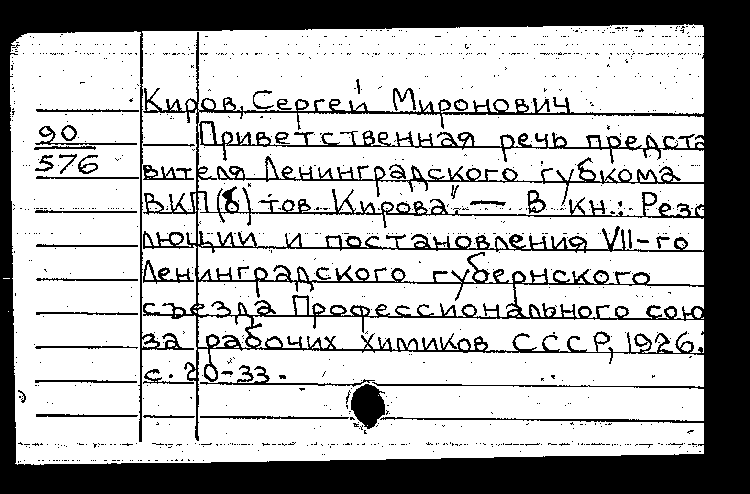 Киров, Сергей Миронович
90
576
Приветственная речь предста
вителя Ленинградского губкома
ВКП(б) тов. Кирова". — В кн.: Резо
люции и постановления VII-го
Ленинградского губернского
съезда Профессионального сою
за рабочих химиков СССР, 1926.
с. 20-33.